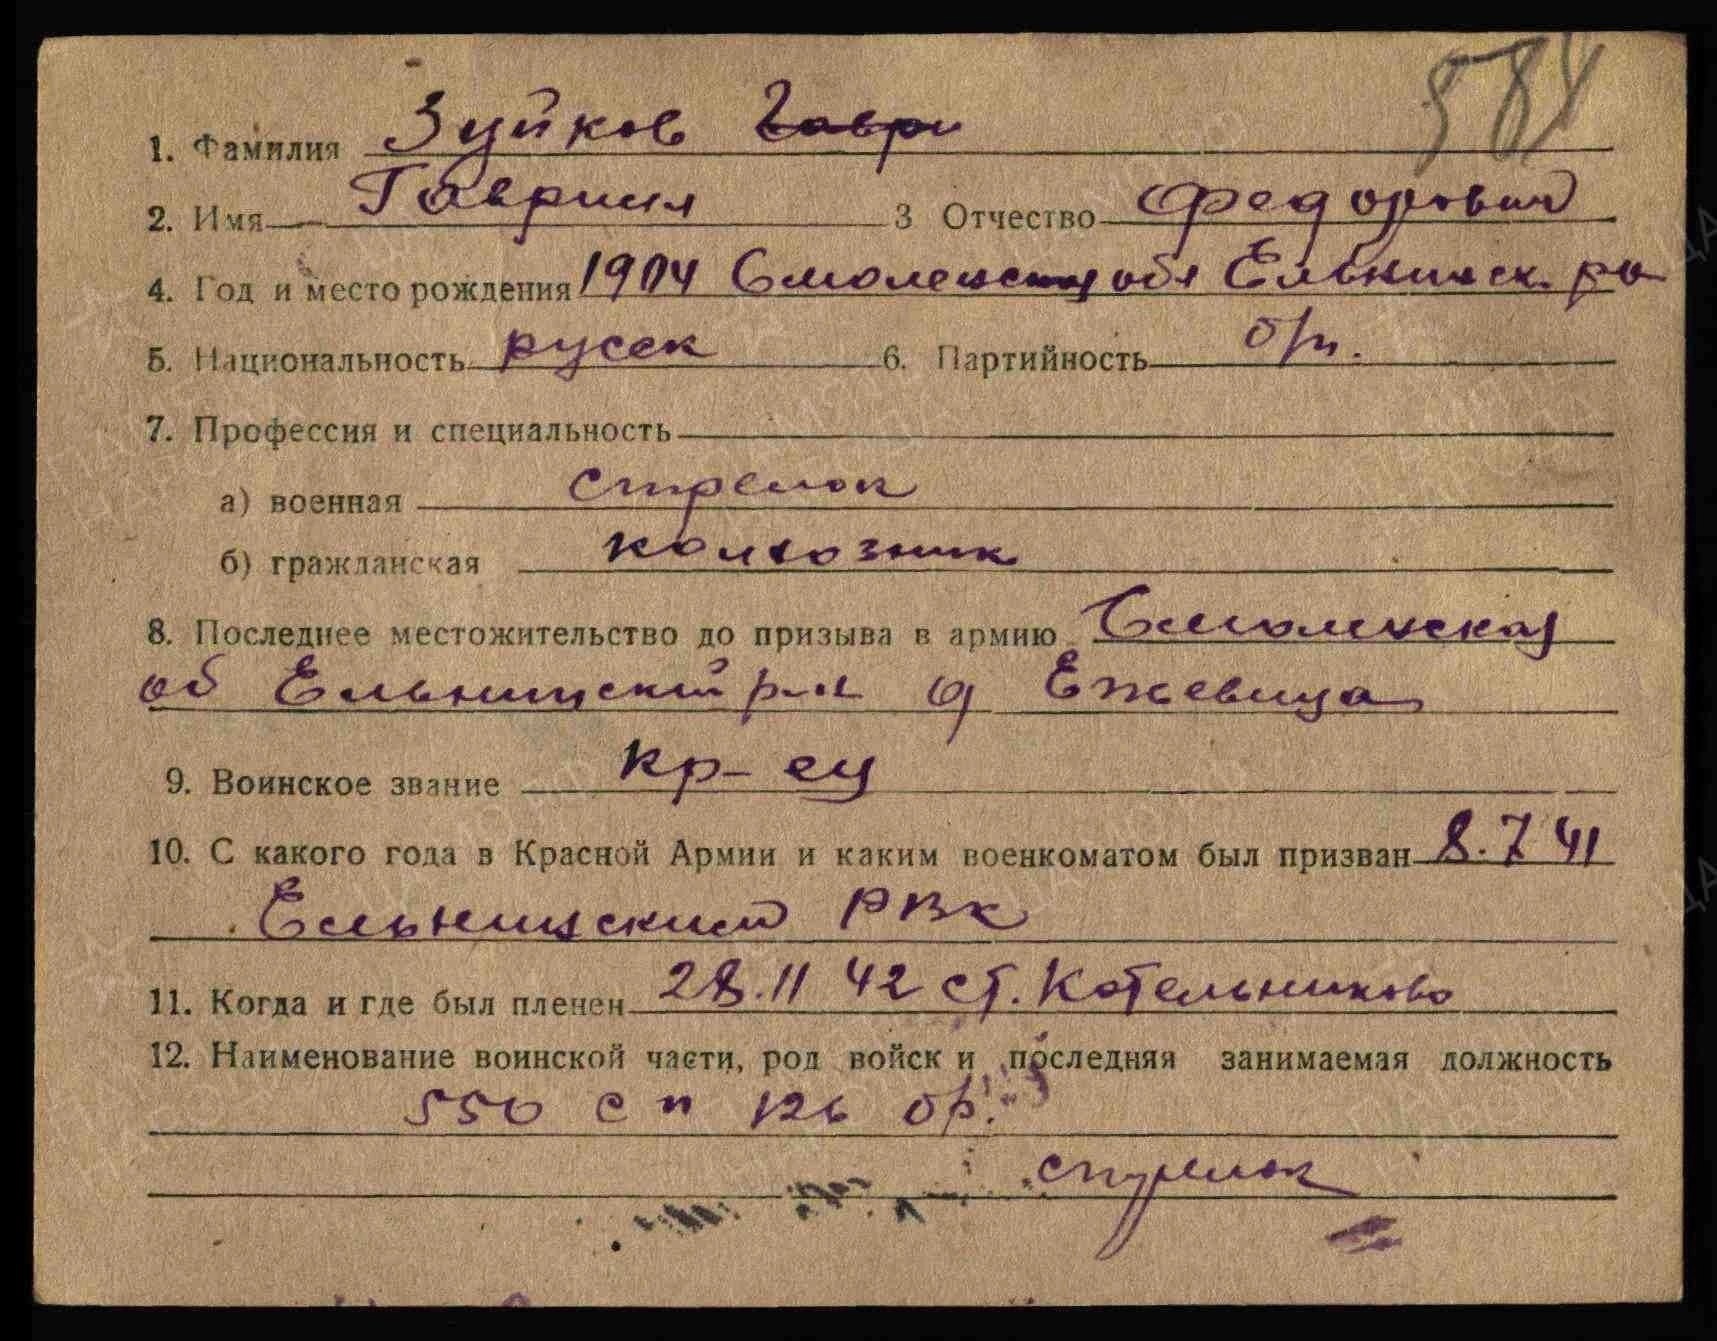 584
1. Фамилия Зуйков Гаври
2. Имя Гавриил 3 Отчество Федорович
4. Год и место рождения 1904 Смоленская обл Ельнинск. р-н
5. Национальность русск 6. Партийность б/п.
7. Профессия и специальность
а) военная стрелок
б) гражданская колхозник
8. Последнее местожительство до призыва в армию Смоленская
об Ельнинский р-н д Ежевица
9. Воинское звание кр-ец
10. С какого года в Красной Армии и каким военкоматом был призван 8.7 41
Ельнинским РВК
11. Когда и где был пленен 28.11 42 ст. Котельниково
12. Наименование воинской части, род войск и последняя занимаемая должность
550 сп 126
стрелок